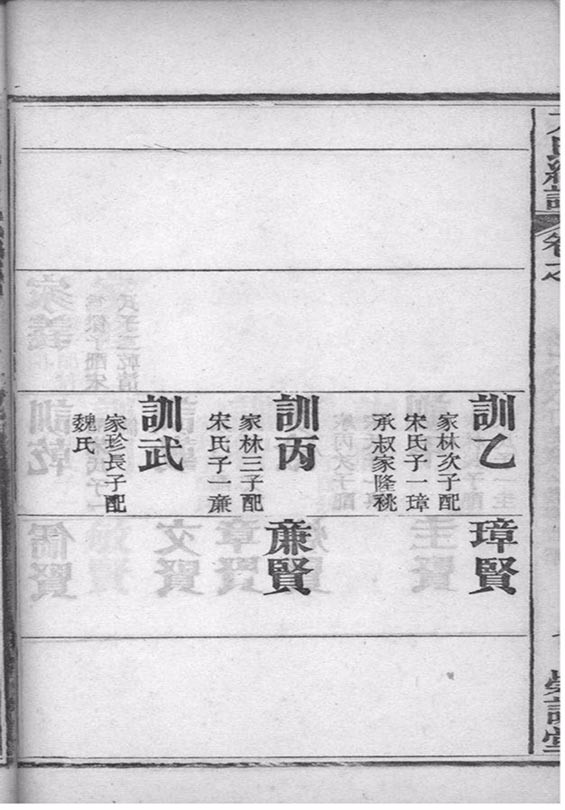 訓乙
家林次子配
宋氏子一璋
承叔家隆祧
璋賢
訓丙
家林三子配
宋氏子一㢘
㢘賢
訓武
家珍長子配
魏氏